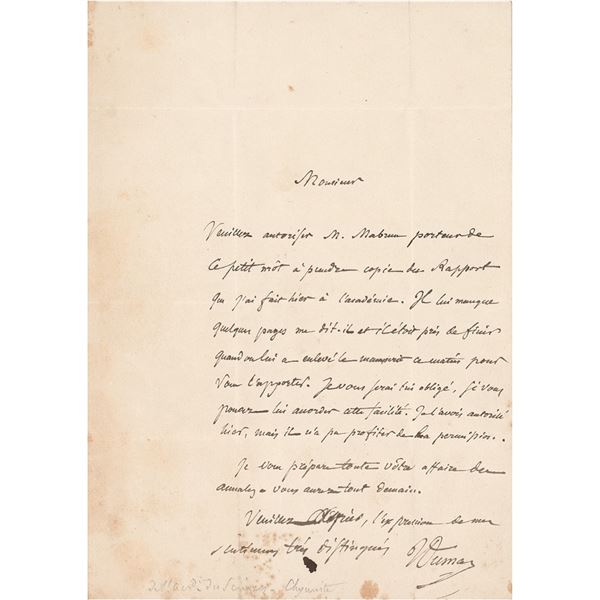 Monsieur
Veuillez autoriser M. Mabrun porteur de
ce petit môt à prendre copie du Rapport
que j'ai fait hier à l'académie. Il lui manque
quelques pages me dit-il et il étoit près de finir
quand on lui a enlevé le manuscrit ce matin pour
vous l'apporter. Je vous serai très obligé, si vous
pouvez lui accorder cette facilité. Je l'avois autorisé
hier, mais il n'a pu profiter de la permission.
Je vous prépare toute vôtre affaire des
annales, vous aurez tout demain.
Veuillez agréer, l'expression de mes
sentimens très distingués
Dumas
de l'acad. des Sciences - Chymiste